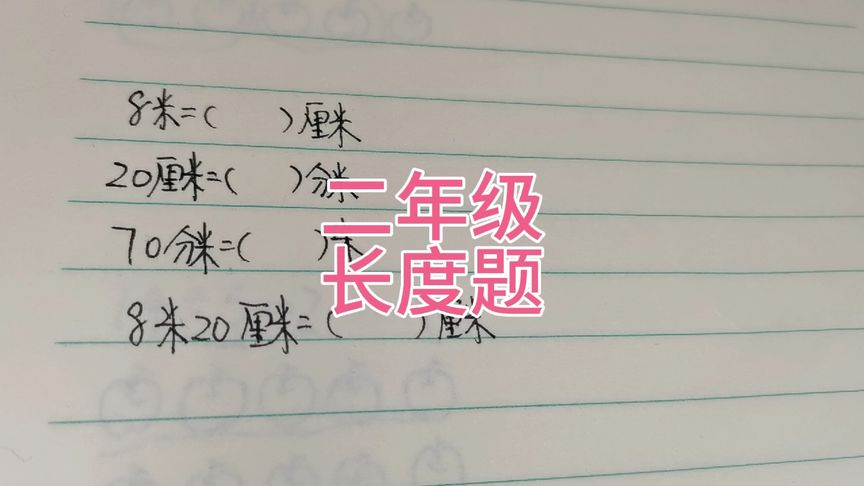 8米=( )厘米
20厘米=( )分米
70分米=( )米
8米20厘米=( )厘米
二年级
长度题